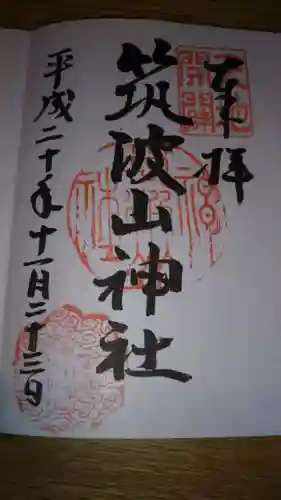 奉拝
天地
開闢
筑波山神社
平成二十年十一月二十三日